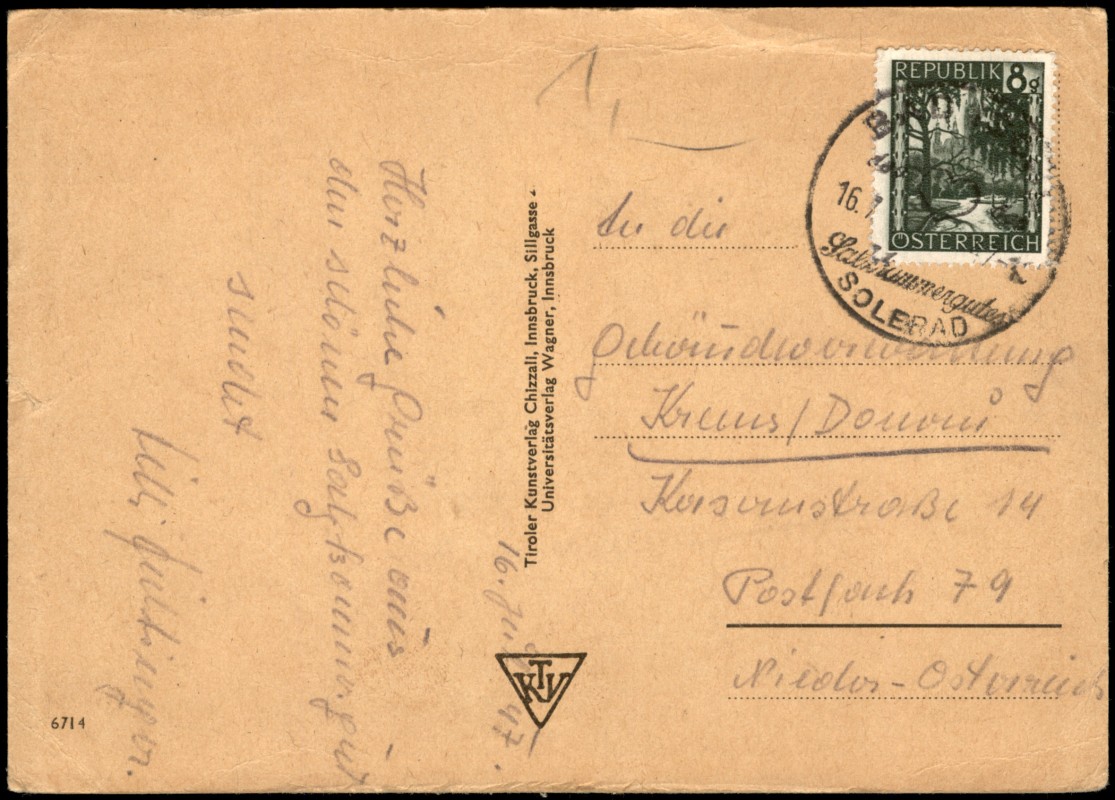 16. Juli 47.
Herzliche Grüße aus
dem schönen Salzkammergut
sendet
Tiroler Kunstverlag Chizzali, Innsbruck, Sillgasse
Universitätsverlag Wagner, Innsbruck
KTV
6714
REPUBLIK 8g
ÖSTERREICH
16.7
Salzkammergutes
SOLEBAD
1,
An die
Gebäudeverwaltung
Krems/Donau
Kasernstraße 14
Postfach 79
Nieder-Österreich